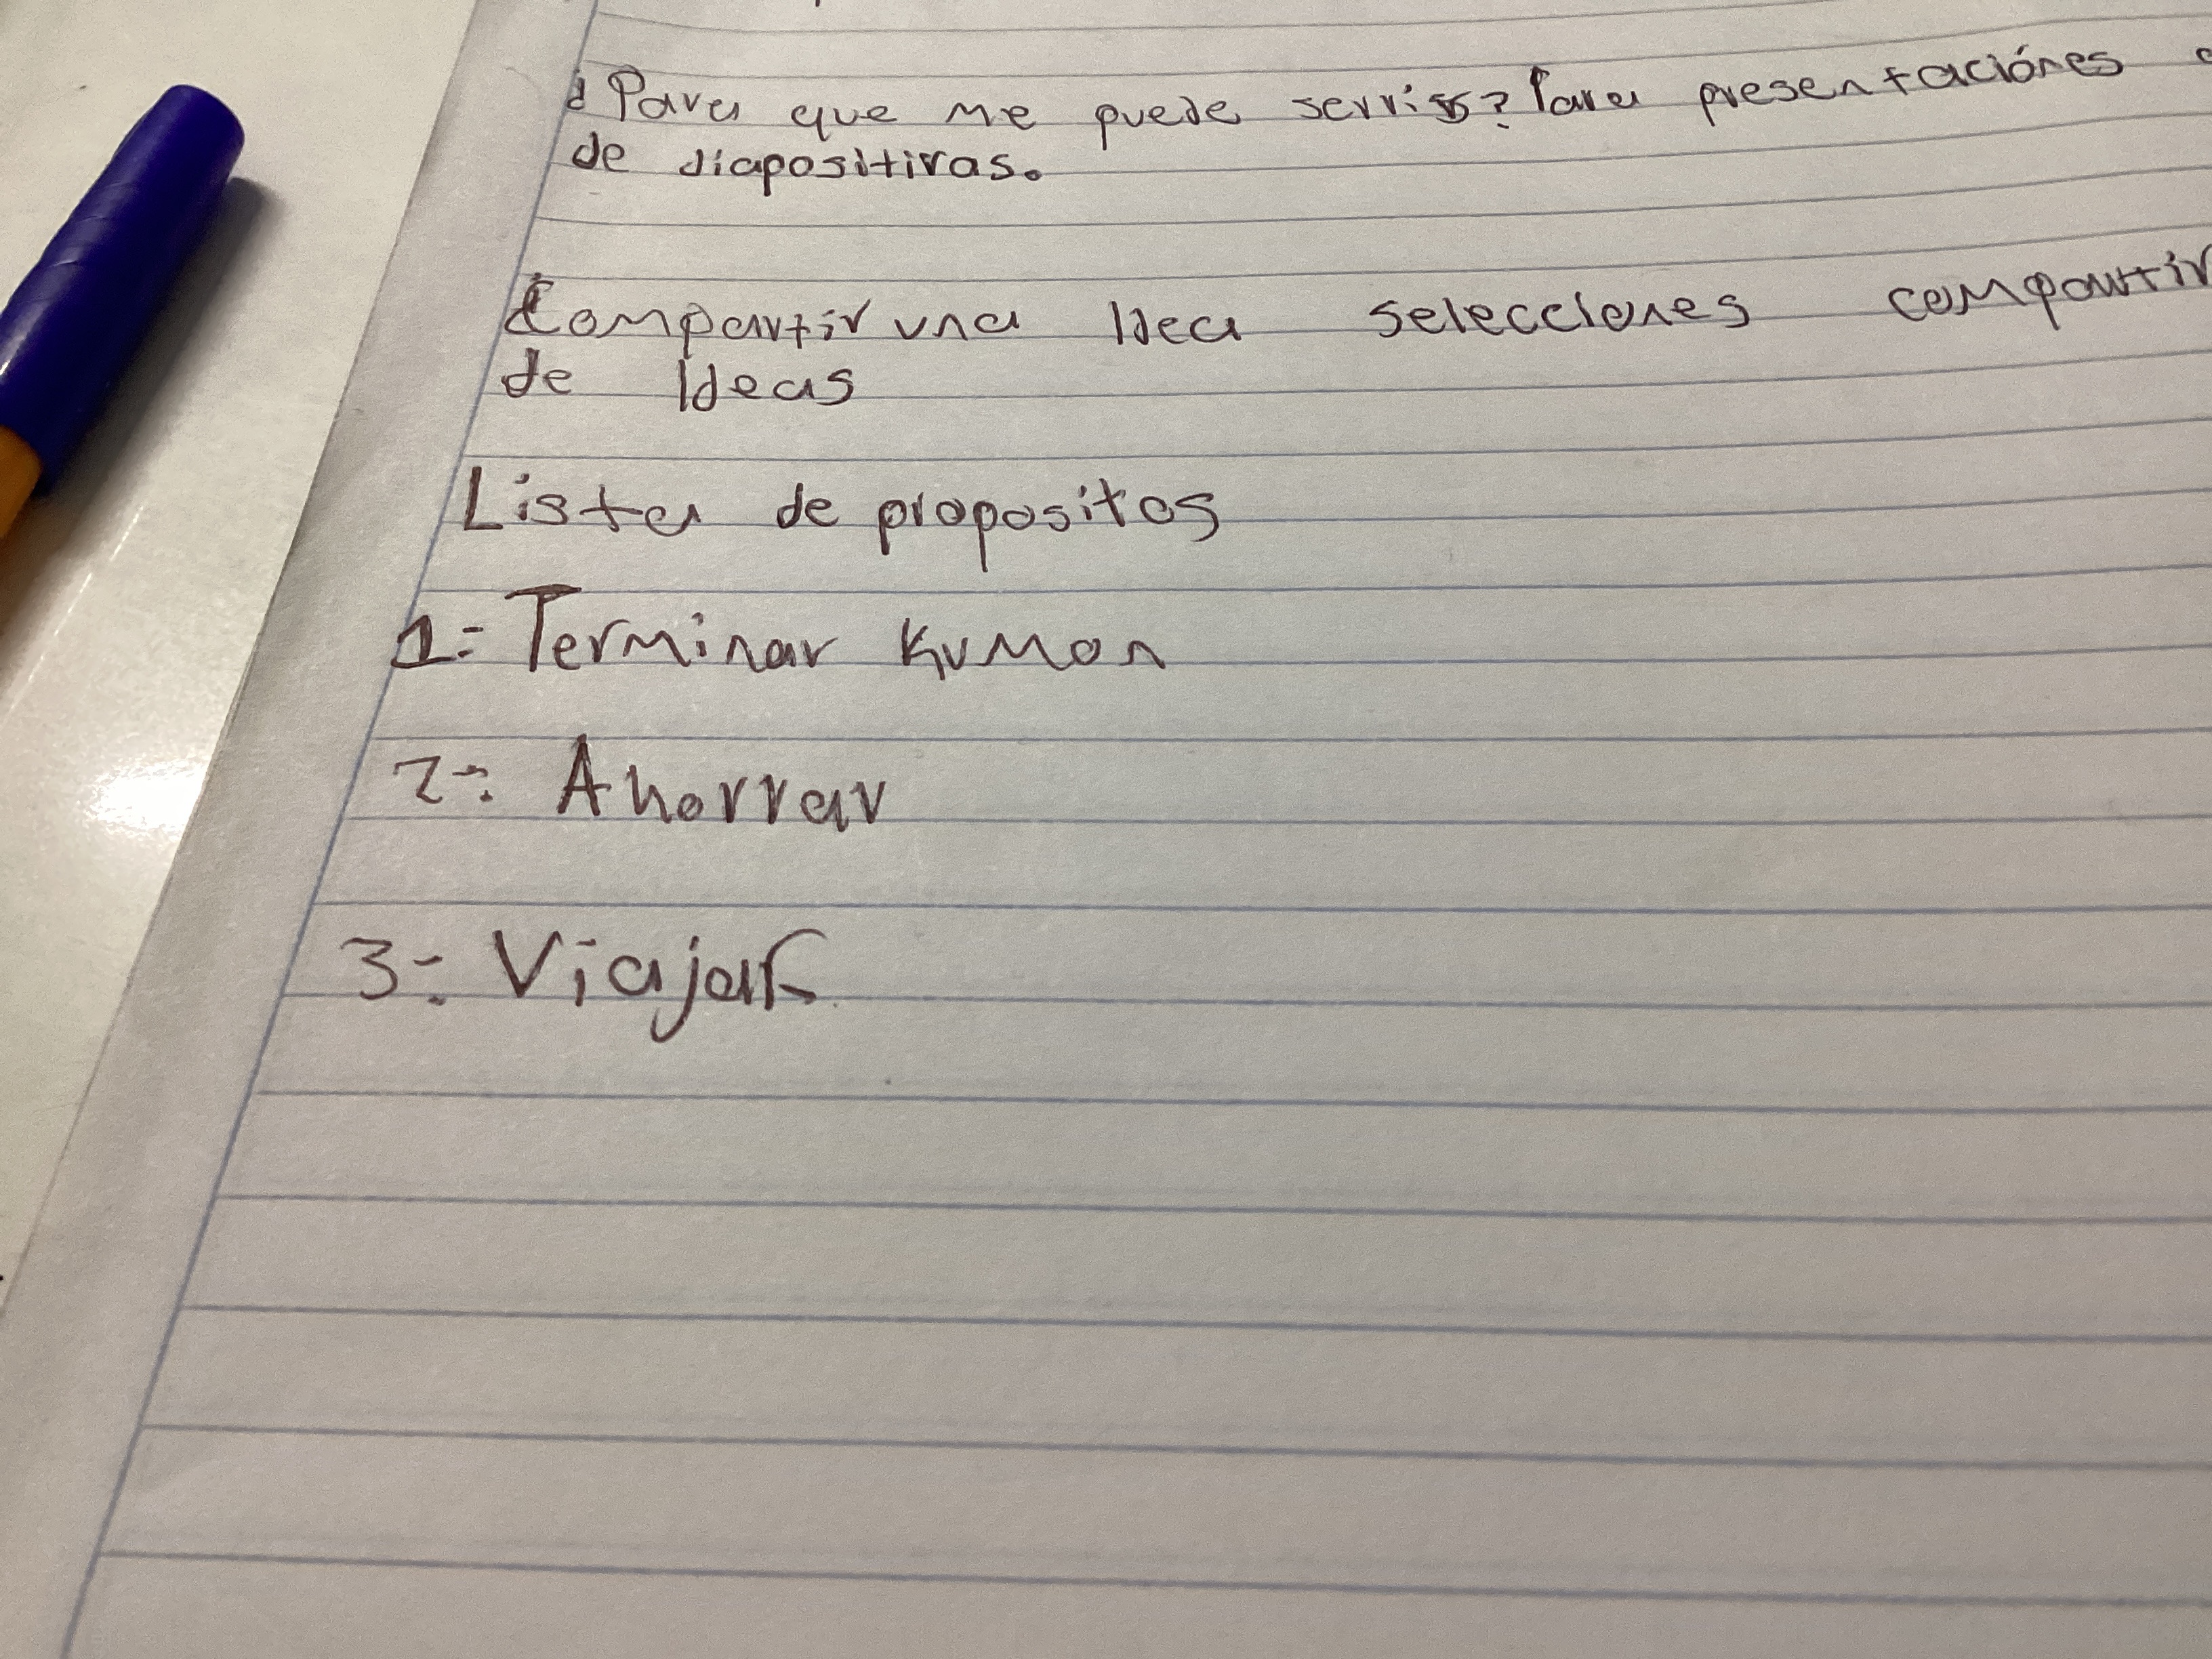 ¿Para que me puede servir? Para presentaciónes
de diapositivas.
Compartir una Idea selecciones compartir
de Ideas
Lista de propositos
1-: Terminar Kumon
2-: Ahorrar
3-: Viajar